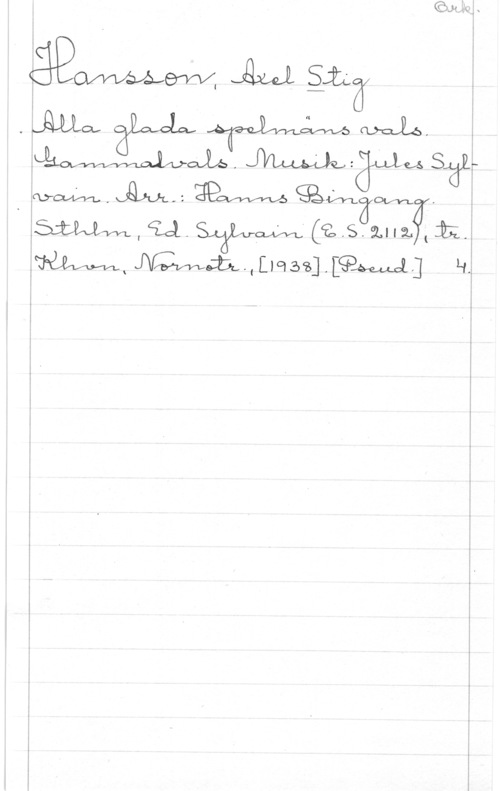 Ork.
Hansson, Axel Stig
Alla glada spelmäns vals.
Gammalvals. Musik: Jules Syl-
vain. Arr.: Hanns Bingang.
Sthlm, Ed. Sylvain (E.S. 2112), tr.
Khvn, Nornotr., [1938]. [Pseud.] 4.